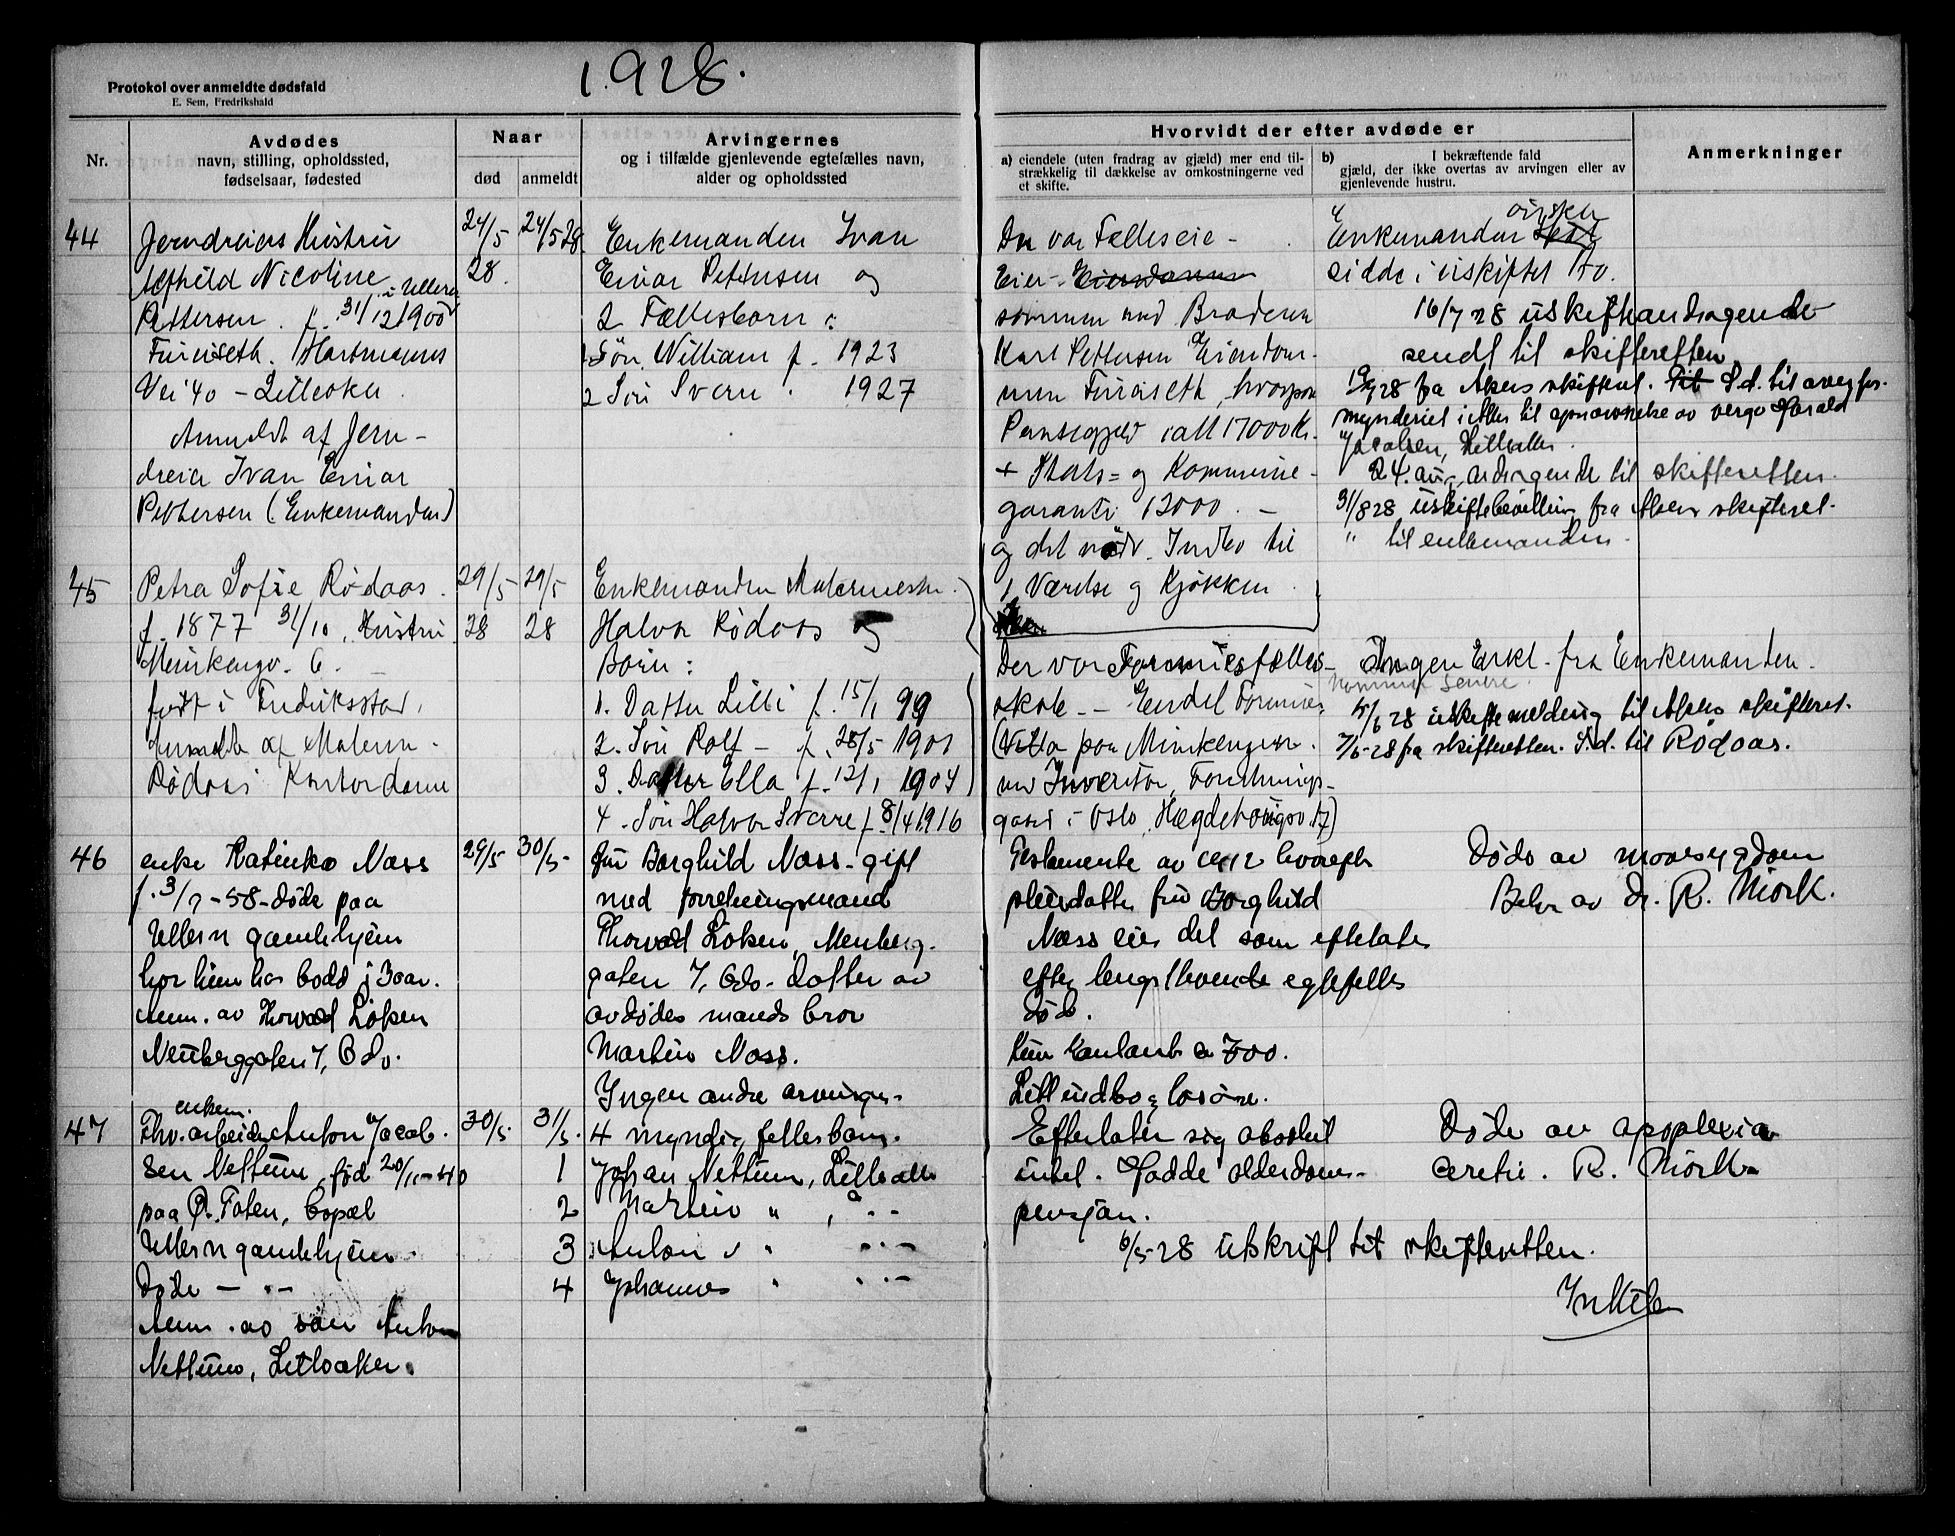 1928.
Protokol over anmeldte dødsfald
E. Sem, Fredrikshald
Nr.
Avdødes
navn, stilling, opholdssted,
fødselsaar, fødested
Naar
død
anmeldt
Arvingernes
og i tilfælde gjenlevende egtefælles navn,
alder og opholdssted
Hvorvidt der efter avdøde er
a) eiendele (uten fradrag av gjæld) mer end til-
strækkelig til dækkelse av omkostningerne ved
et skifte.
b) I bekræftende fald
gjæld, der ikke overtas av arvingen eller av
gjenlevende hustru.
Anmerkninger
44
Jerndreiers Hustru
Nicoline
Pettersen. f. 31/12 1900 i Ullern
Furuseth. Hartmanns
Vei 40 - Lilleaker
Anmeldt af Jern-
dreier Ivan Einar
Pettersen (Enkemanden)
24/5
28.
24/5 28.
Enkemanden Ivan
Einar Pettersen og
2 Fællesbarn:
1. Søn William f. 1923
2 Søn Sverre. 1927
Der var Fælleseie -
Eier
sammen med Broderen
Karl Pettersen Eiendom-
men Furuseth, hvorpaa
Pantegjeld ialt 17000 Kr.
+ Stats- og Kommune-
garanti 12000. -
og det nødv. Indbo til
1 Værelse og Kjøkken
Enkemanden ønsker
sidde i uskiftet Bo.
16/7 28 uskifteandragende
sendt til skifteretten
19/7 28 fra Akers skifteret. S.d. til overfor-
mynderiet i Aker til opnævnelse av verge Harald
Jacobsen, Lilleaker.
24. aug. andragende til skifteretten.
31/8 28 uskiftebevilling fra Akers skifteret.
" til enkemanden.
45
Petra Sofie Rødaas.
f. 1877 31/10, Hustru
Munkengv. 6. -
født i Fredriksstad,
Anmeldt af Malerm.
Rødaas Kontordame
29/5
28
29/5
28
Enkemanden Malermester
Halvor Rødaas og
Børn:
1. Datter Lilli f. 15/1 99
2. Søn Rolf - f. 28/5 1901
3. Datter Ella f. 12/1 1904
4. Søn Halvor Sverre f. 8/4 1916
Der var Formuesfælles-
skab. - Endel Formue,
(Villa paa Munkengen.
Inventar, Forretnings-
gaard i Oslo, Hægdehaugsv. 17)
Ingen Erkl. fra Enkemanden.
Kommer senere.
5/6 28 uskiftemelding til Akers skifteret.
7/6-28 fra skifteretten. S.d. til Rødaas.
46
enke Katinka Næss
f. 3/7-58-døde paa
Ullern gamlehjem
hvor hun har bodd i 3 aar.
Anm. av Thorvald Løken
Neuberggaten 7, Oslo.
29/5
30/5-
Fru Borghild Næss-gift
med forretningsmand
Thorvald Løken, Neuberg-
gaten 7, Oslo. Datter av
avdødes mands bror
Martin Næss.
Ingen andre arvinger.
Testamente av 1912 hvorefter
pleiedatter fru Borghild
Næss eier det som efterlates
efter lengstlevende egtefelles
død.
Kun kontant a 700.
Litt indbo og løsøre.
Døde av mavesygdom
Beh. av dr. R. Mörk.
47
enkem.
Fhv. arbeider Anton Jacob-
sen Nettum, født 20/11-40
paa Ø. Toten, bopæl
Ullern gamlehjem.
Døde - " -
Anm. av søn Anton
Nettum, Lilleaker.
30/5.
31/5.
4 myndig fellesbarn.
1 Johan Nettum, Lilleaker
2 Martin " , " -
3 Anton " " " -
4 Johannes " " -
Efterlater sig absolut
intet. Hadde alderdoms-
pensjon.
6/5-28 utskrift til skifteretten.
Døde av apoplexia
cerebri. R. Mörk